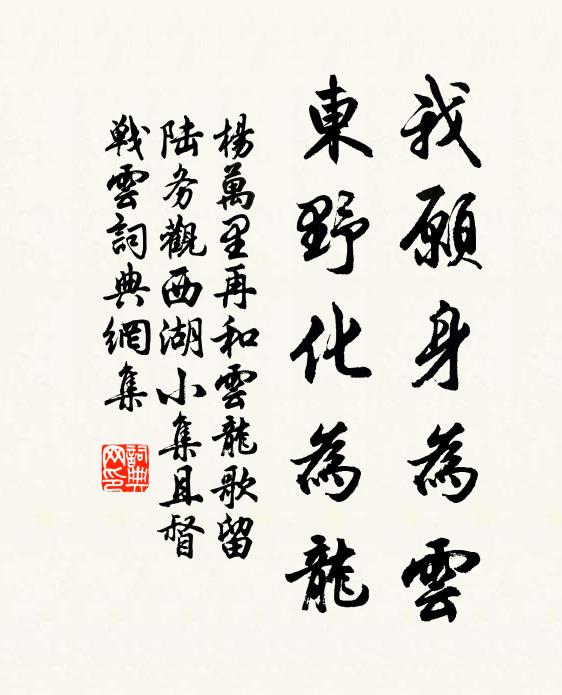 我願身為雲
東野化為龍
楊萬里再和雲龍歌留
陆务觀西湖小集且督
戰雲詞典網集
詞典网印